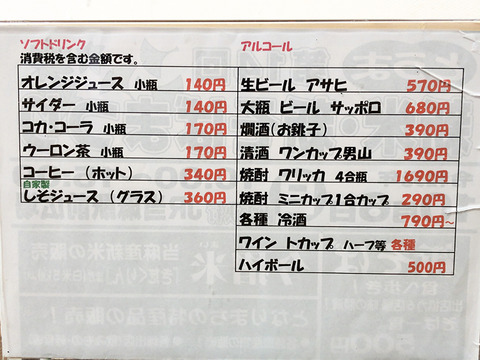 ソフトドリンク
消費税を含む金額です。
オレンジジュース 小瓶 140円
サイダー 小瓶 140円
コカ・コーラ 小瓶 170円
ウーロン茶 小瓶 170円
コーヒー(ホット) 340円
自家製
しそジュース(グラス) 360円
アルコール
生ビール アサヒ 570円
大瓶 ビール サッポロ 680円
燗酒(お銚子) 390円
清酒 ワンカップ男山 390円
焼酎 ワリッカ 4合瓶 1690円
焼酎 ミニカップ1合カップ 290円
各種 冷酒 790円~
ワイン トカップ ハーフ等 各種
ハイボール 500円